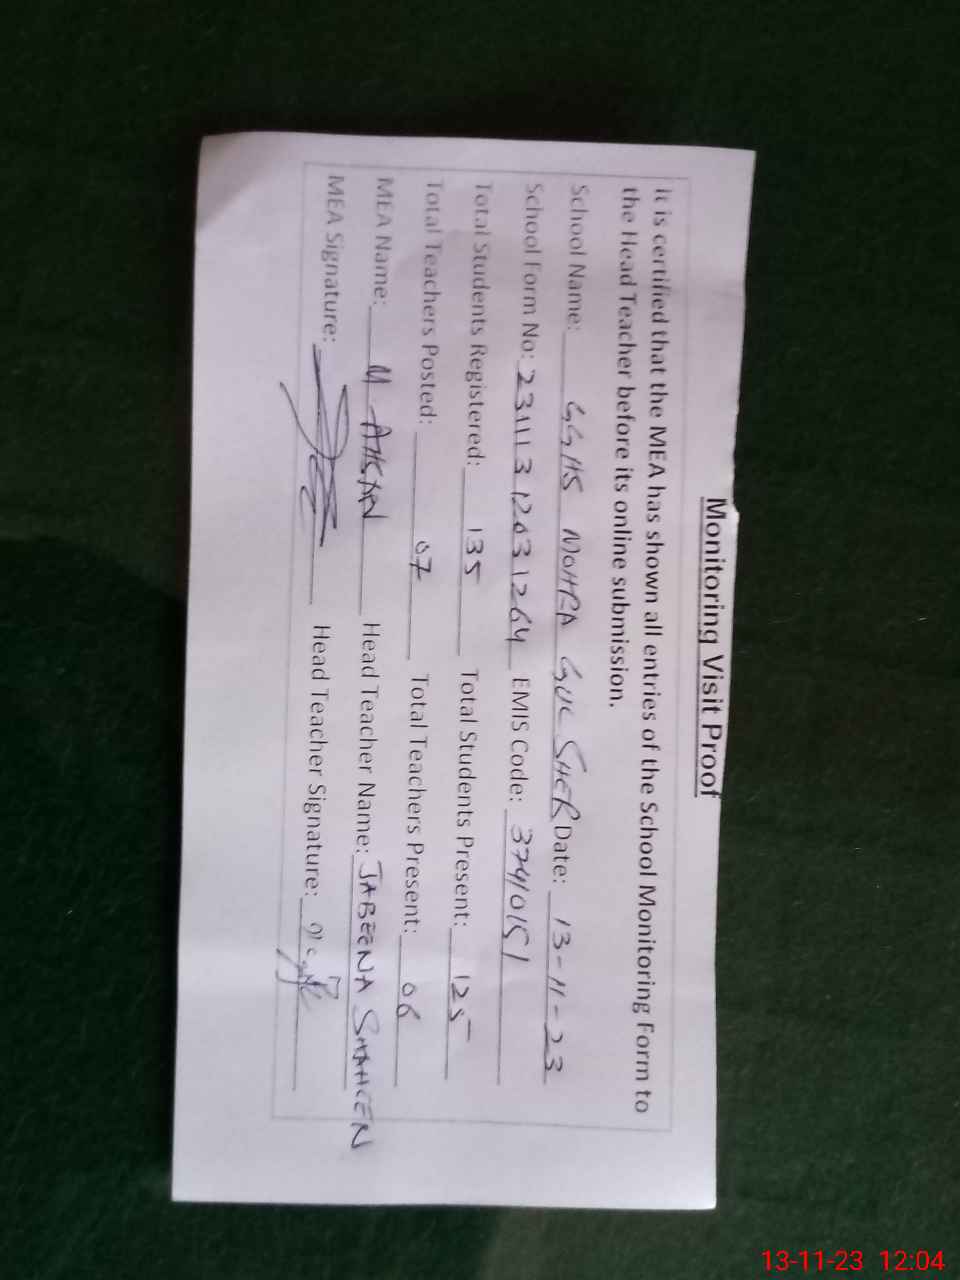 Monitoring Visit Proof
It is certified that the MEA has shown all entries of the School Monitoring Form to
the Head Teacher before its online submission.
School Name: GGHS MOHRA GUL SHER Date: 13-11-23
School Form No: 231113 12031264 EMIS Code: 37410151
Total Students Registered: 135 Total Students Present: 125
Total Teachers Posted: 07 Total Teachers Present: 06
MEA Name: M AHSAN Head Teacher Name: JABEENA SHAHEEN
MEA Signature: Head Teacher Signature:
13-11-23 12:04